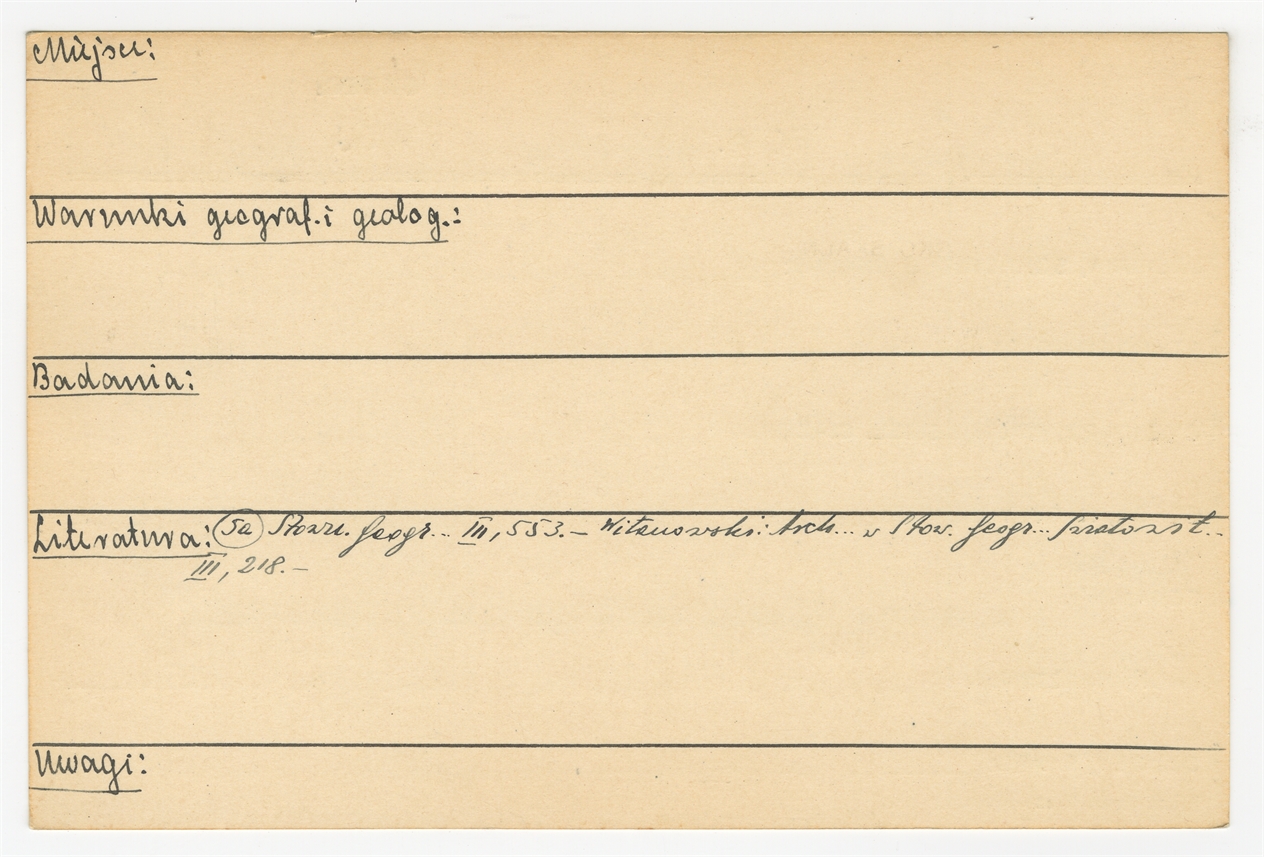 Miejsce:
Warunki geograf. i geolog.:
Badania:
Literatura: 5a Słown. Geogr... III, 553.— Witanowski: Arch... w Słow. Geogr... Światowit..
III, 218.—
Uwagi: